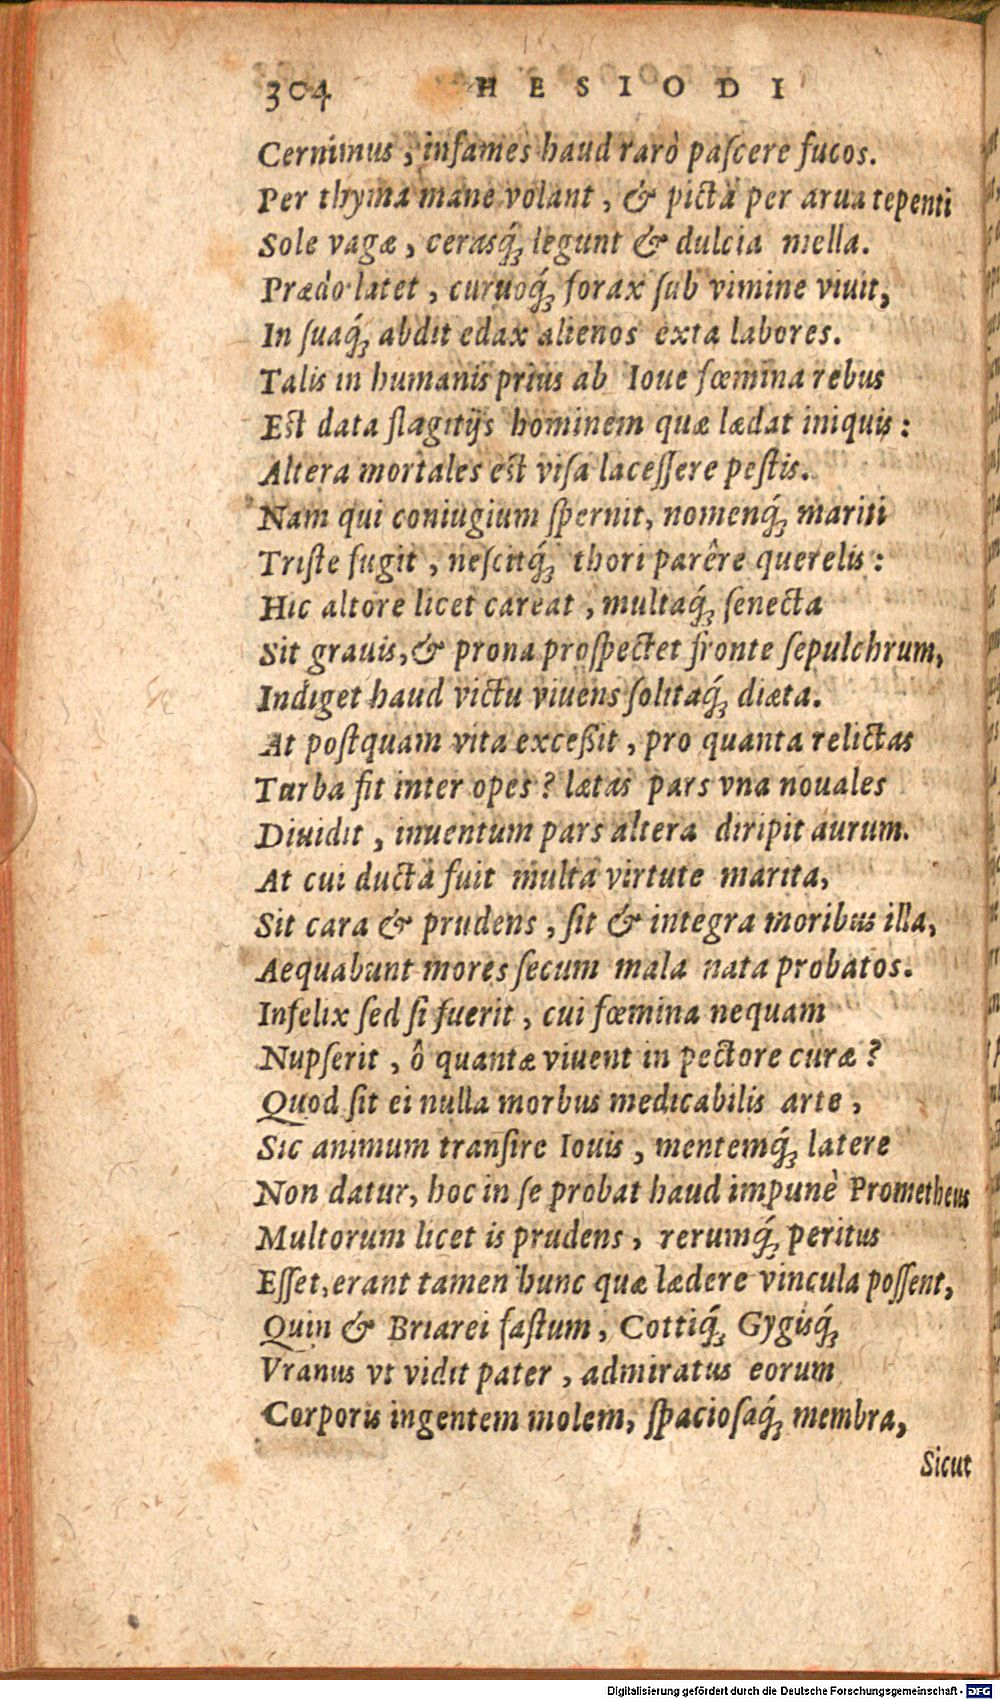 304 HESIODI
Cernimus, infames haud rarò paſcere fucos.
Per thyma mane volant, & picta per arua tepenti
Sole vagæ, cerasq́; legunt & dulcia mella.
Prædo latet, curuoq́; forax ſub vimine viuit,
In ſuaq́; abdit edax alienos exta labores.
Talis in humanis prius ab Ioue fœmina rebus
Eſt data flagitijs hominem quæ lædat iniquis:
Altera mortales eſt viſa laceſſere peſtis.
Nam qui coniugium ſpernit, nomenq́; mariti
Triſte fugit, neſcitq́; thori parêre querelis:
Hic altore licet careat, multaq́; ſenecta
Sit grauis, & prona proſpectet fronte ſepulchrum,
Indiget haud victu viuens ſolitaq́; diæta.
At poſtquam vita exceßit, pro quanta relictas
Turba fit inter opes? lætas pars vna nouales
Diuidit, inuentum pars altera diripit aurum.
At cui ducta fuit multa virtute marita,
Sit cara & prudens, ſit & integra moribus illa,
Aequabunt mores ſecum mala nata probatos.
Infelix ſed ſi fuerit, cui fœmina nequam
Nupſerit, ô quantæ viuent in pectore curæ?
Quod ſit ei nulla morbus medicabilis arte,
Sic animum tranſire Iouis, mentemq́; latere
Non datur, hoc in ſe probat haud impunè Prometheus
Multorum licet is prudens, rerumq́; peritus
Eſſet, erant tamen hunc quæ lædere vincula poſſent,
Quin & Briarei faſtum, Cottiq́; Gygisq́;
Vranus vt vidit pater, admiratus eorum
Corporis ingentem molem, ſpacioſaq́; membra,
Sicut
Digitalisierung gefördert durch die Deutsche Forschungsgemeinschaft - DFG